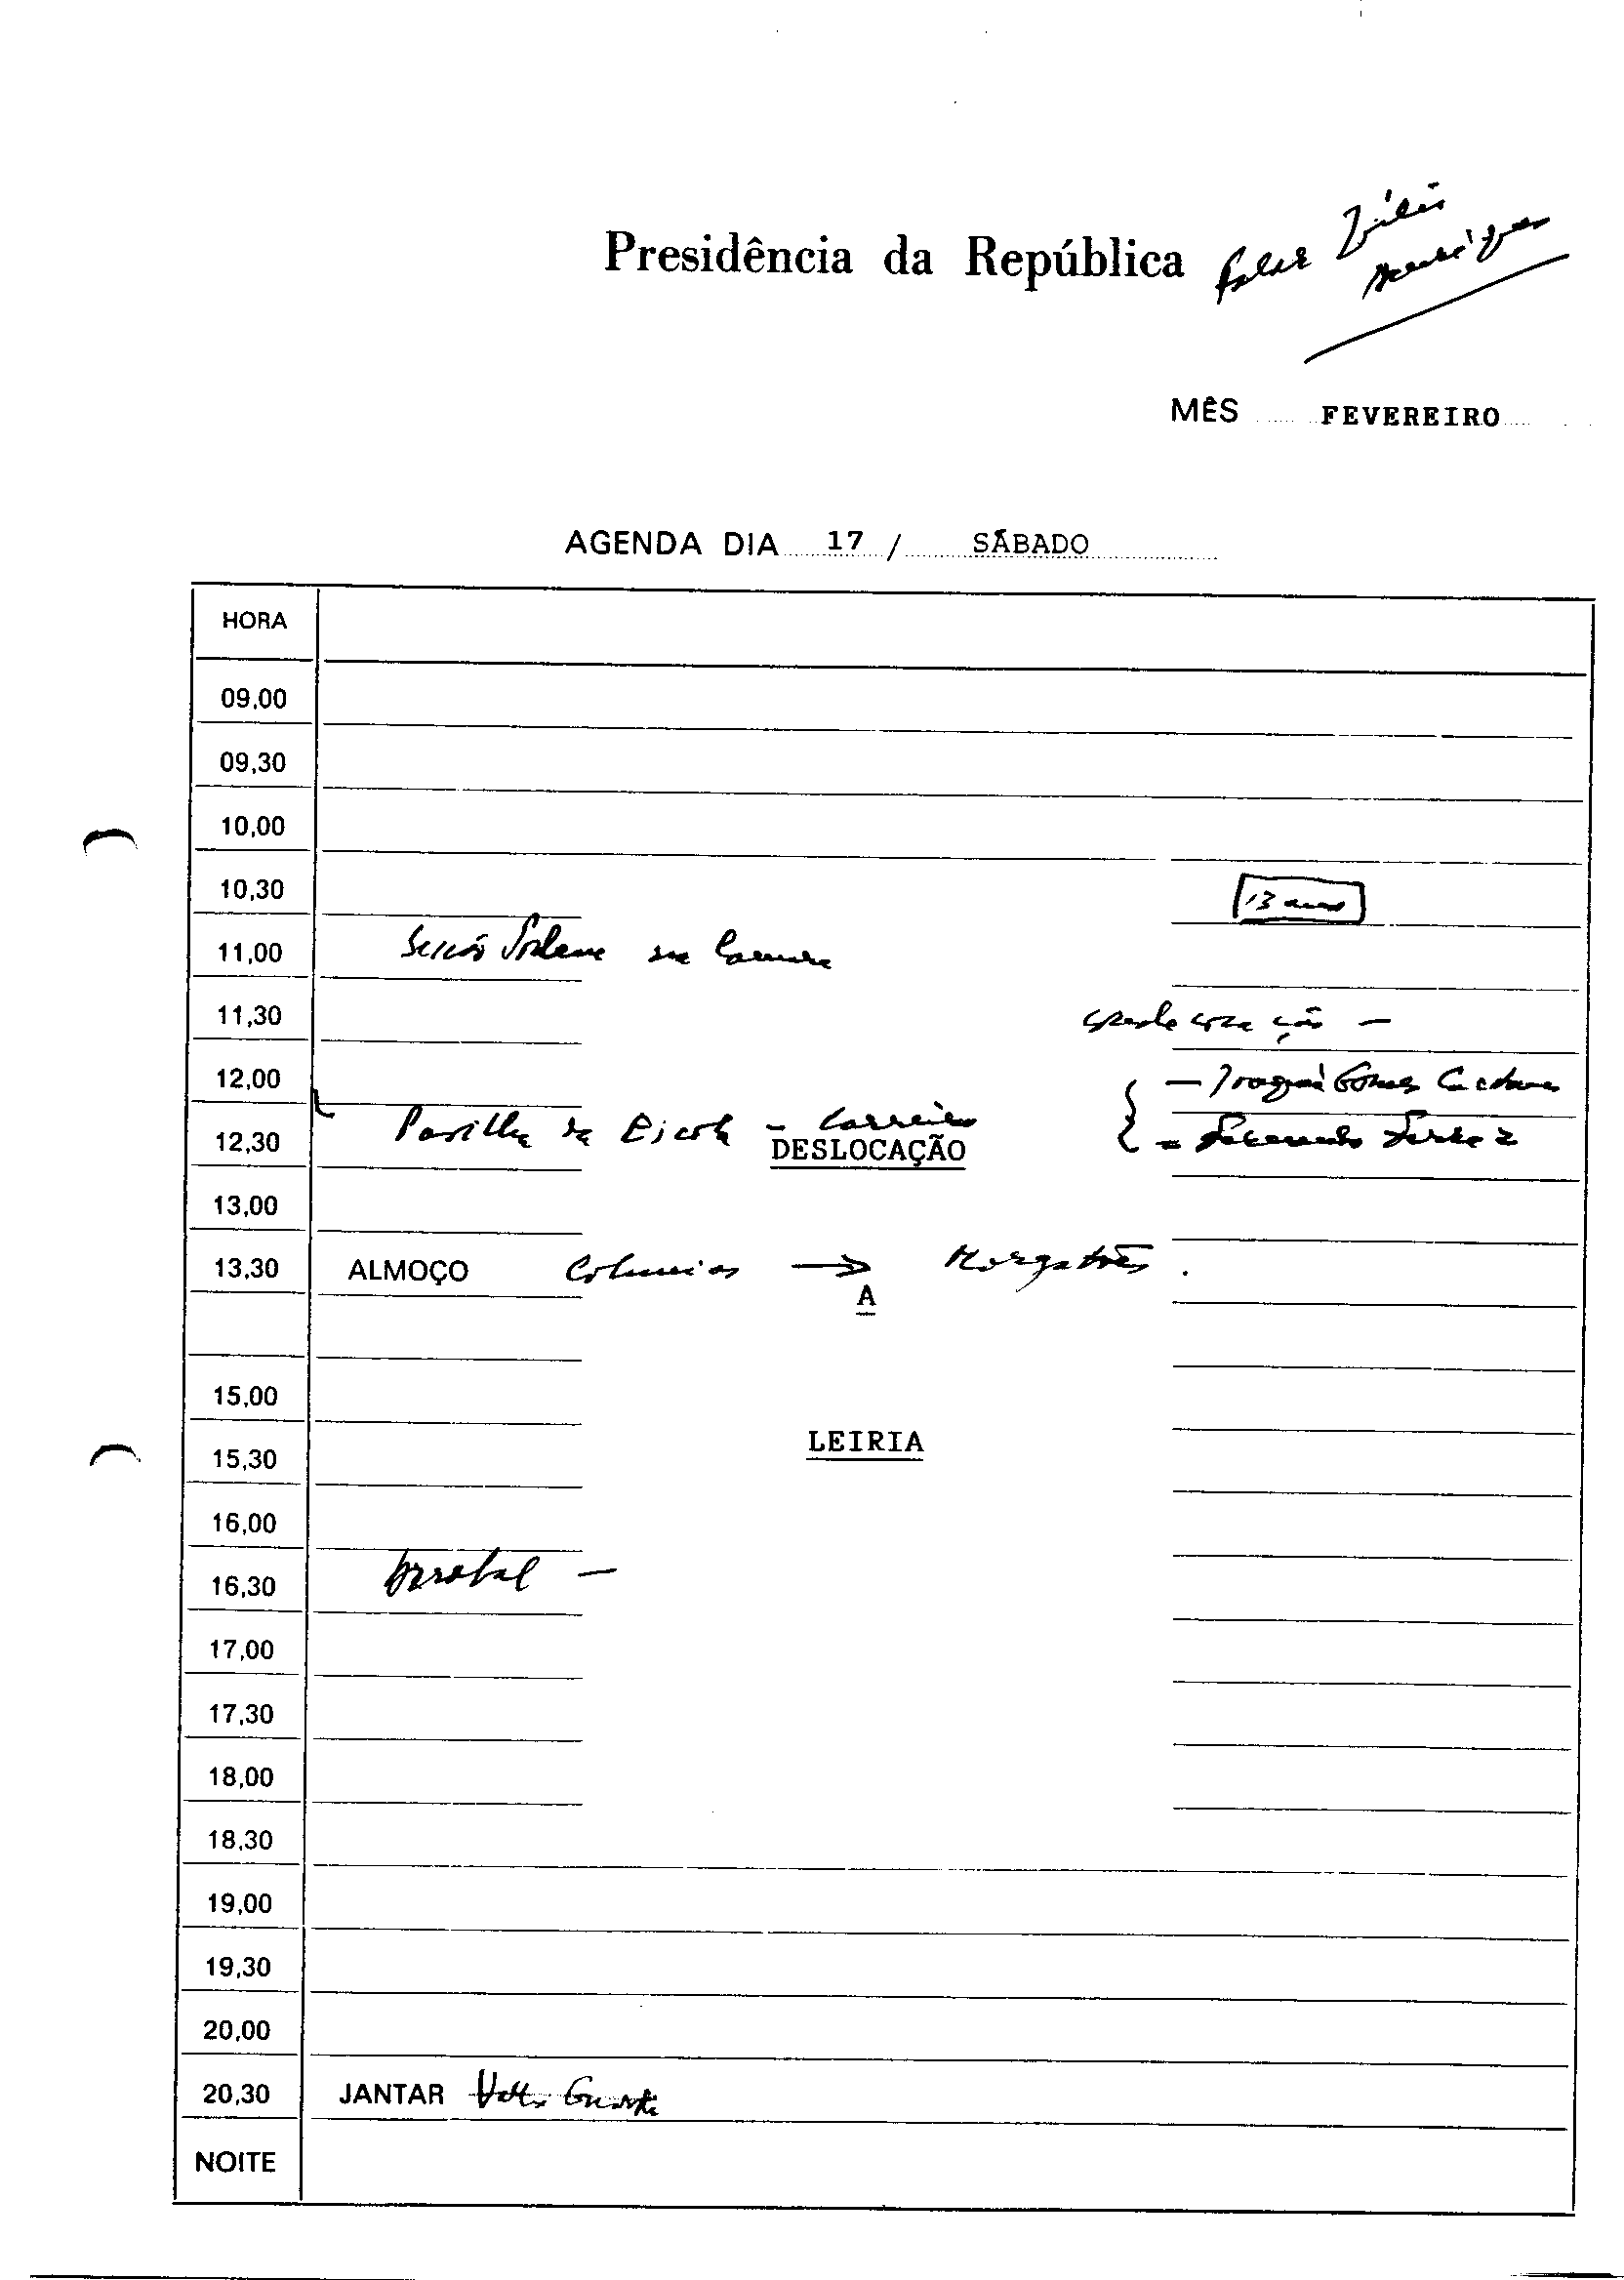 Presidência da República falar Júlio
Henriques
MÊS FEVEREIRO
AGENDA DIA 17 / SÁBADO
HORA
09,00
09,30
10,00
10,30 13 anos
11,00 Sessão Solene na Camara
11,30 condecoração —
12,00 — Joaquim Gomes
12,30 Partilha da Escola - Carreira
DESLOCAÇÃO
13,00
13,30 ALMOÇO Colmeias → 
A
15,00
LEIRIA
15,30
16,00
16,30 Arrabal —
17,00
17,30
18,00
18,30
19,00
19,30
20,00
20,30 JANTAR
NOITE